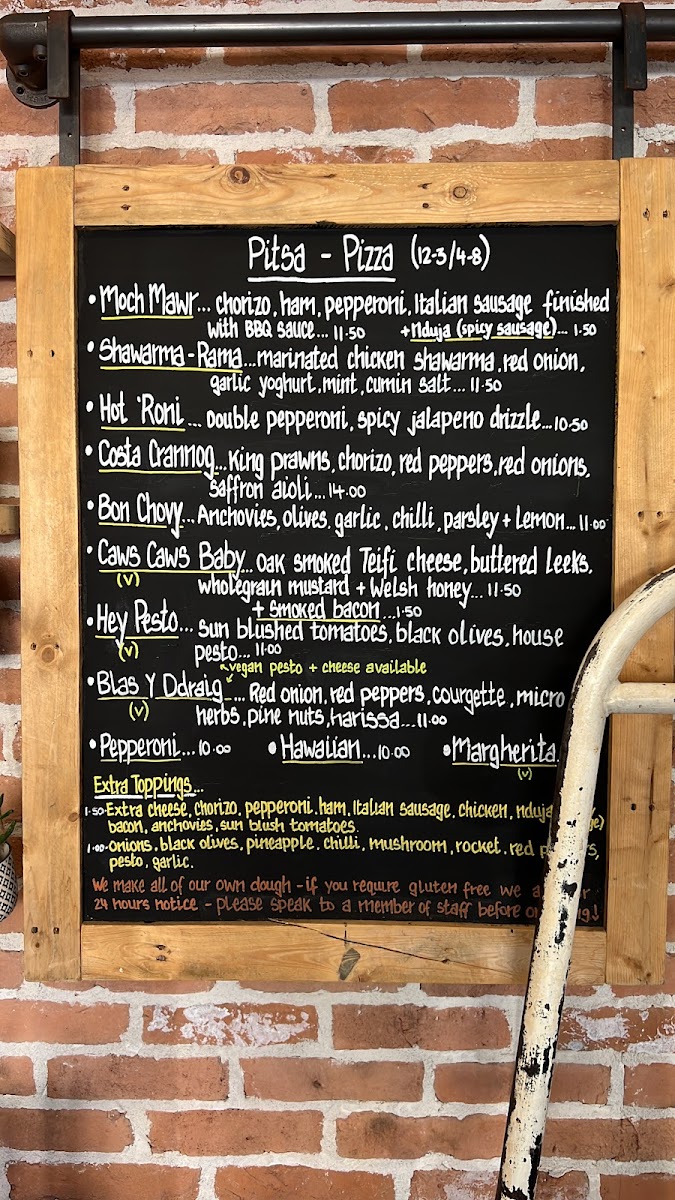 Pitsa - Pizza (12-3/4-8)
• Moch Mawr... chorizo, ham, pepperoni, Italian sausage finished
with BBQ sauce... 11.50 + nduja (spicy sausage)... 1.50
• Shawarma-Rama...marinated chicken shawarma, red onion,
garlic yoghurt, mint, cumin salt... 11.50
• Hot 'Roni... Double pepperoni, spicy jalapeno drizzle...10.50
• Costa Crannog...King prawns, chorizo, red peppers, red onions,
saffron aioli...14.00
• Bon Chovy...Anchovies, olives, garlic, chilli, parsley + Lemon... 11.00
• Caws Caws Baby... Oak smoked Teifi cheese, buttered Leeks,
(v) wholegrain mustard + Welsh honey... 11.50
+ smoked bacon...1.50
• Hey Pesto... Sun blushed tomatoes, black olives, house
(v) pesto... 11.00
vegan pesto + cheese available
• Blas Y Ddraig... Red onion, red peppers, courgette, micro
(v) herbs, pine nuts, harissa...11.00
• Pepperoni...10.00 • Hawaiian...10.00 • Margherita
(v)
Extra Toppings...
1.50-Extra cheese, chorizo, pepperoni, ham, Italian sausage, chicken, nduja
bacon, anchovies, sun blush tomatoes.
1.00-onions, black olives, pineapple, chilli, mushroom, rocket, red
pesto, garlic.
We make all of our own dough - if you require gluten free we
24 hours notice - please speak to a member of staff before